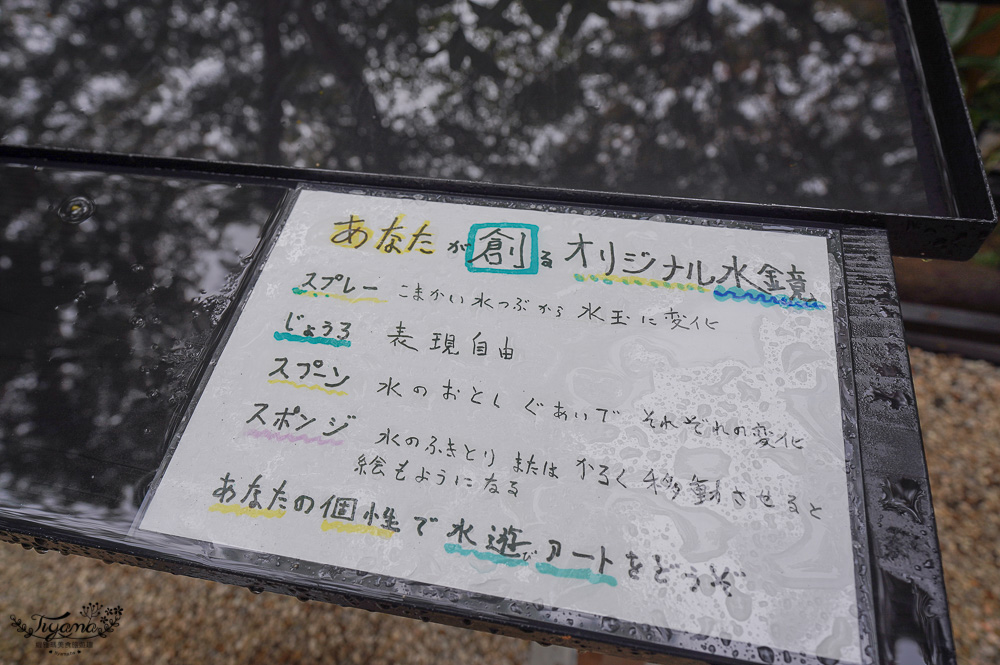 あなたが創るオリジナル水鏡
スプレー こまかい水つぶから水玉に変化
じょうろ 表現自由
スプーン 水のおとしぐあいで それぞれの変化
スポンジ 水のふきとり または かるく移動させると
絵もようになる
あなたの個性で水遊びアートをどうぞ
Tiyama